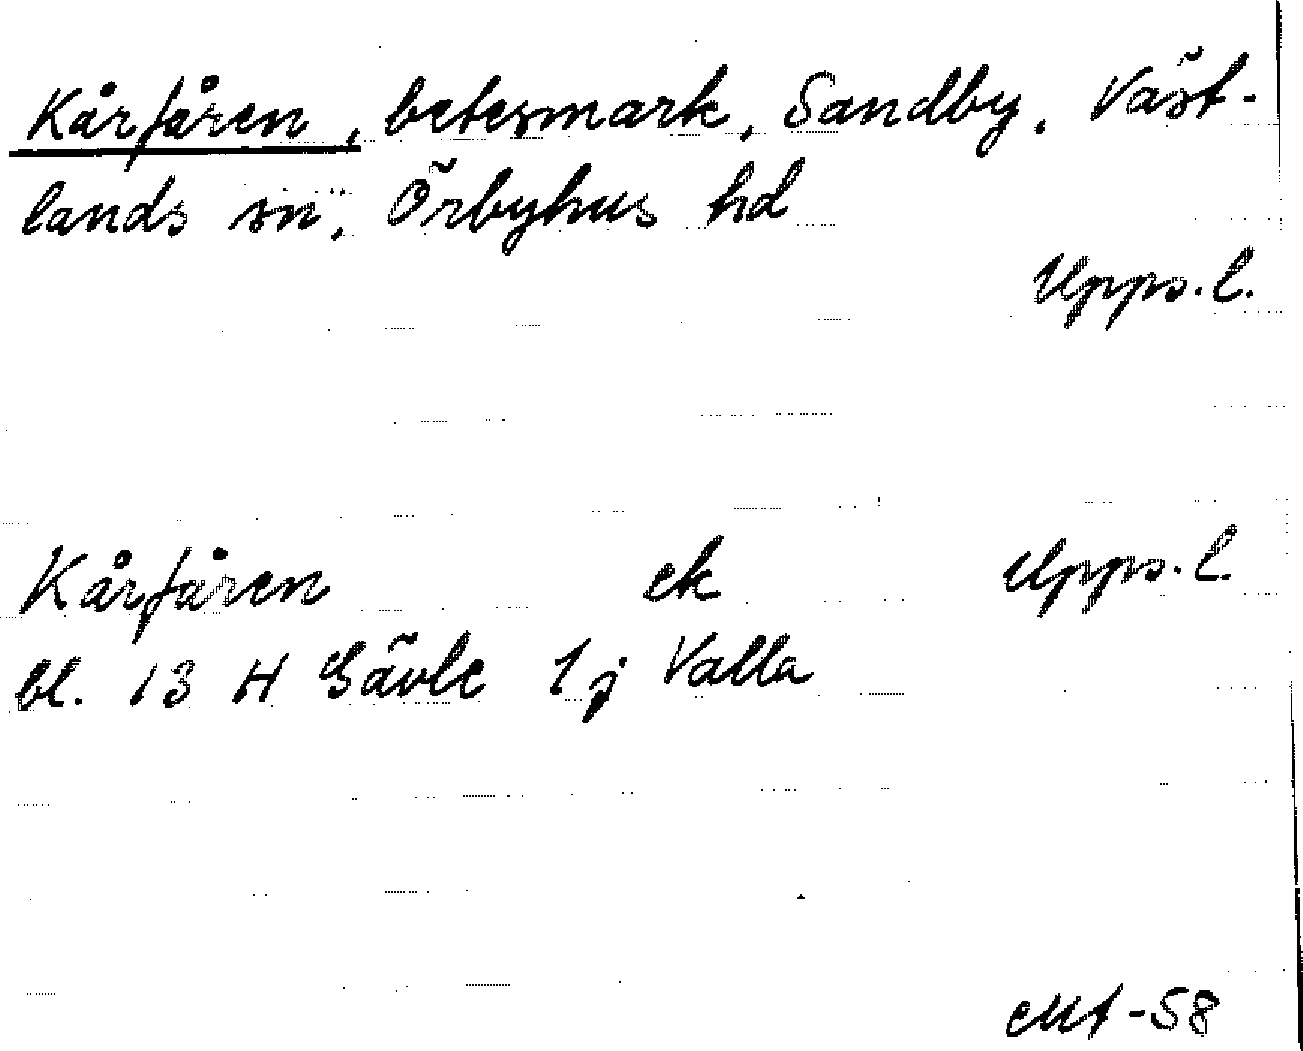 Kårfåren, betesmark, Sandby, Väst-
lands sn, Örbyhus hd
Upps. l.
Kårfåren ek Upps. l.
bl. 13 H Gävle 1 j Valla
-58